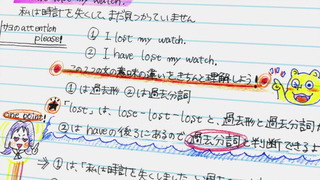 lost my watch.
私は時計を失くして、まだ見つかっていません
attention
please!
① I lost my watch.
② I have lost my watch.
この2つの文の意味の違いをきちんと理解しよう!
①は過去形 ②は過去分詞
one point!
「lost」は、lost-lost-lostと、過去形と過去分詞が
②はhaveの後ろにあるので過去分詞と判断できるよ
⇒ ①は、「私は時計を失くしました